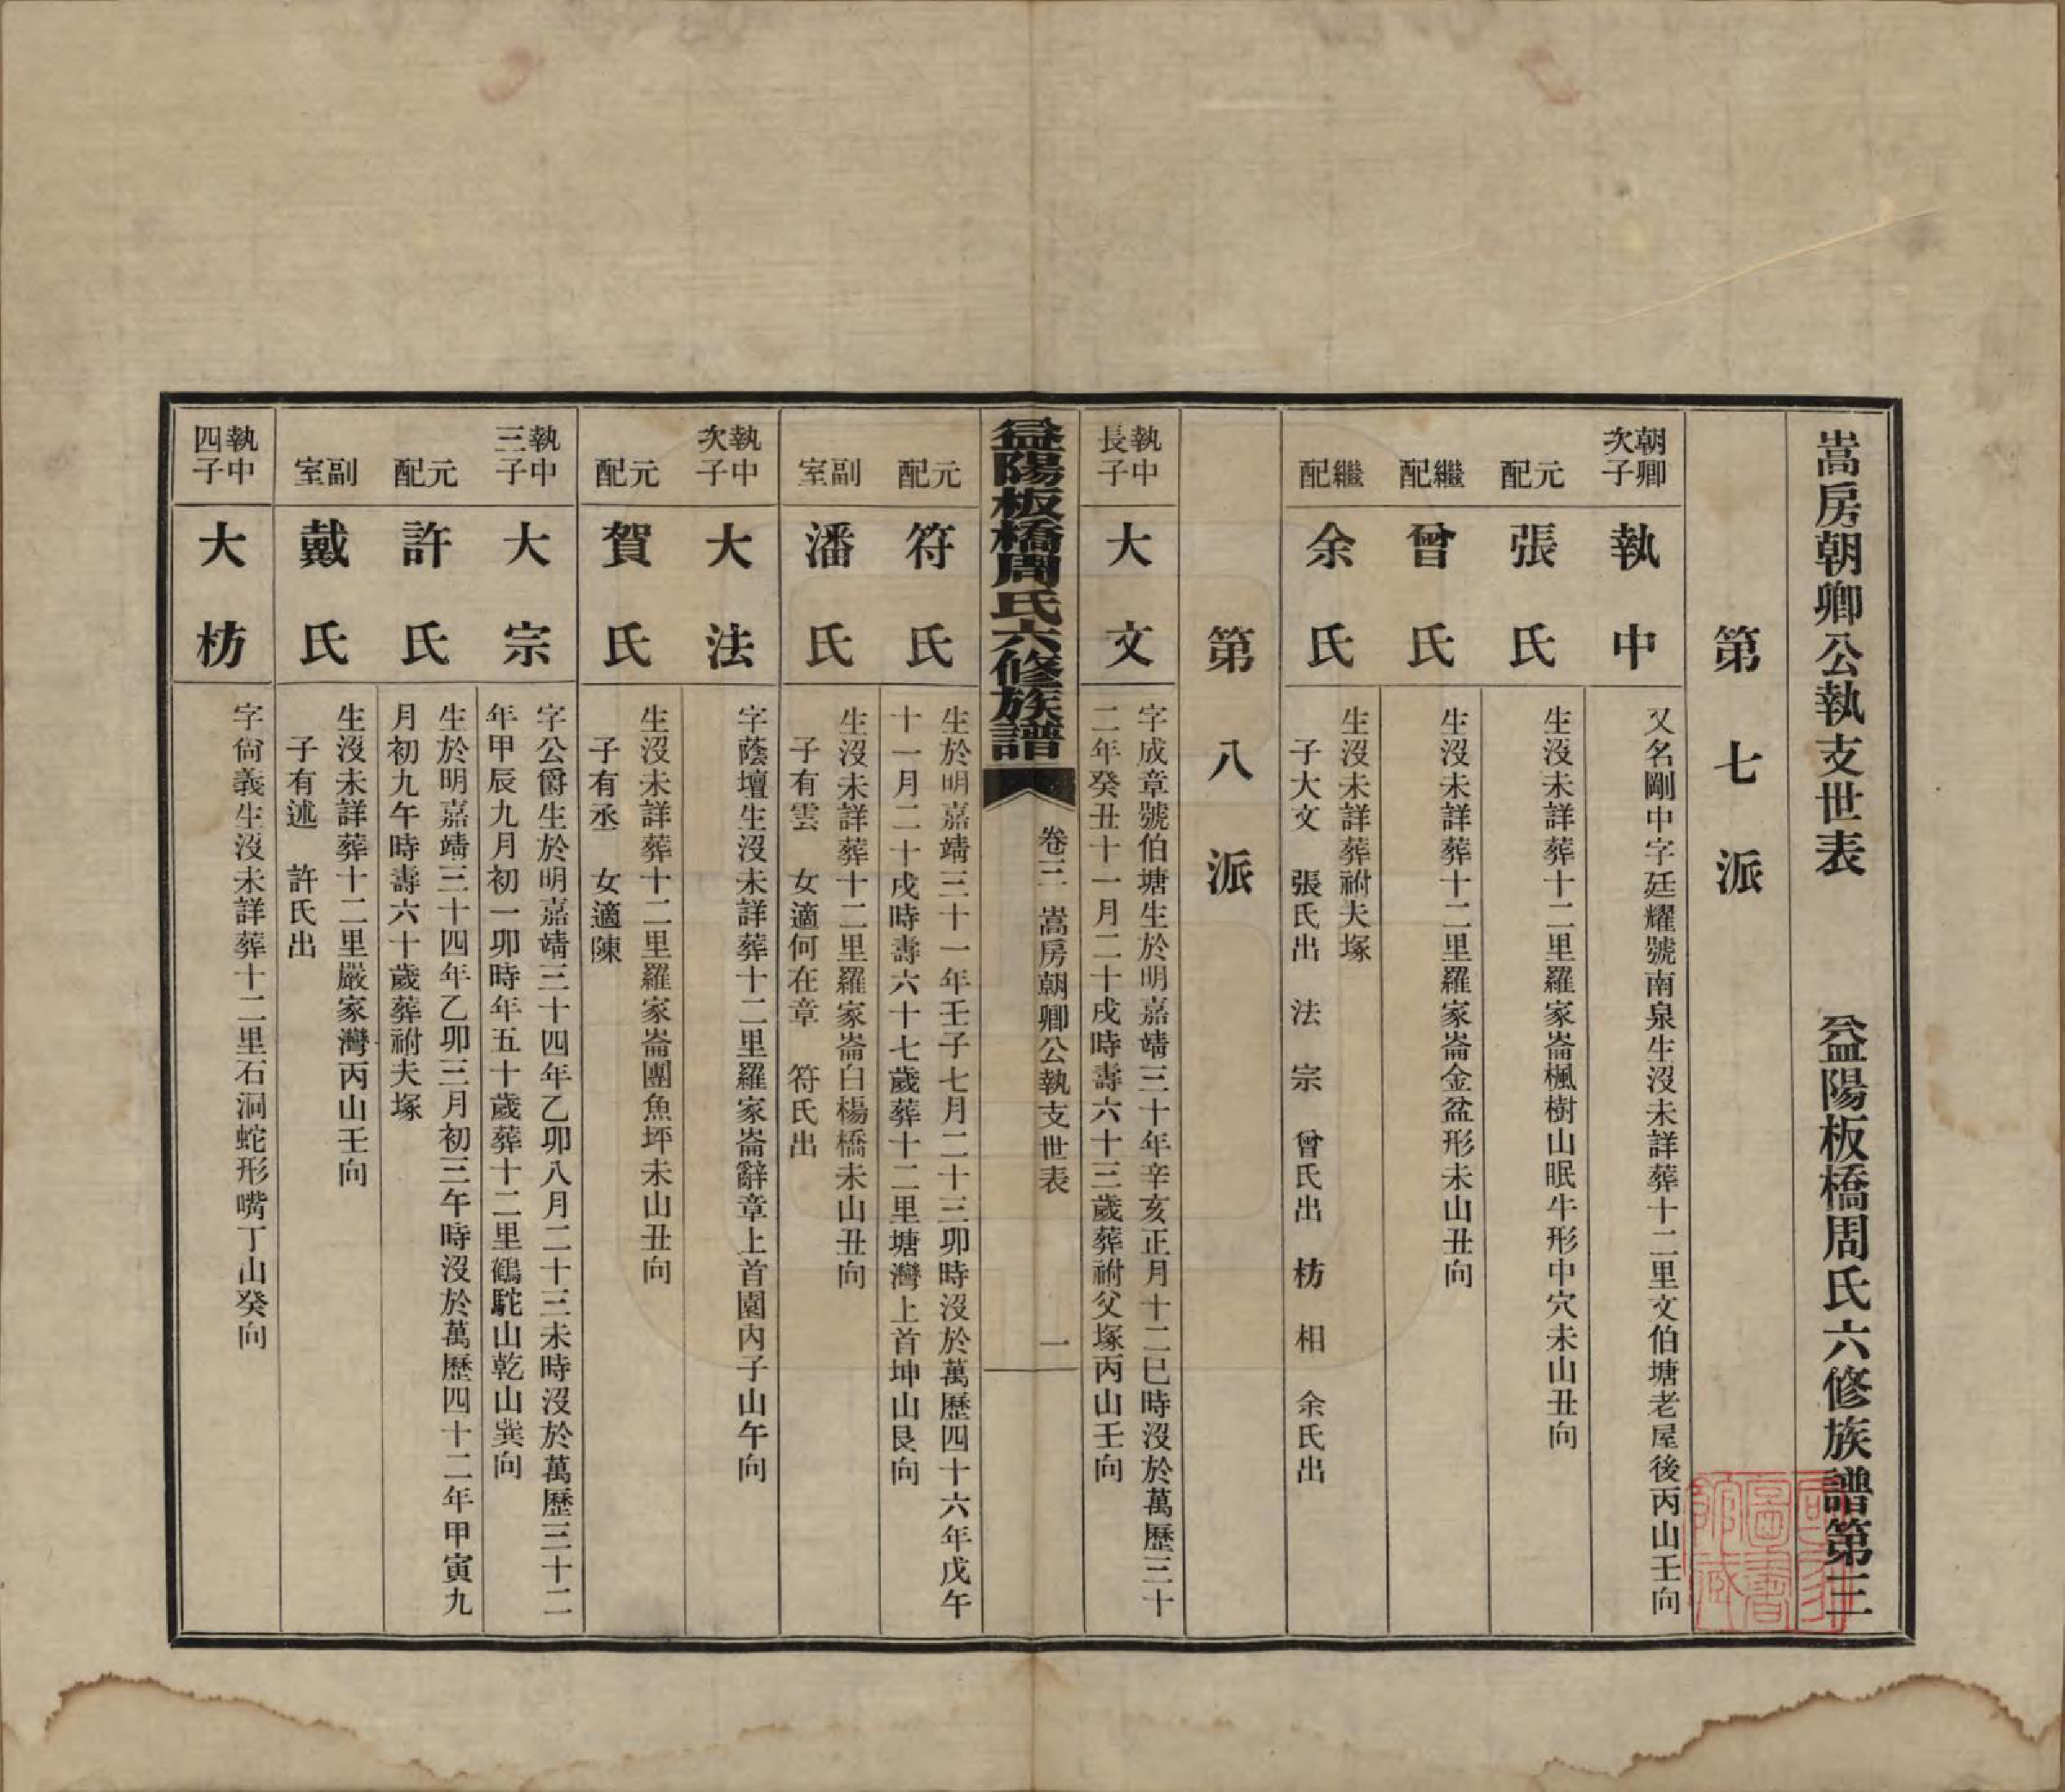 嵩房朝卿公執支世表　益陽板橋周氏六修族譜第三
第七派
朝卿次子
執中
又名剛中字廷耀號南泉生沒未詳葬十二里文伯塘老屋後丙山壬向
元配
張氏
生沒未詳葬十二里羅家崙楓樹山眠牛形中穴未山丑向
繼配
曾氏
生沒未詳葬十二里羅家崙金盆形未山丑向
繼配
余氏
生沒未詳葬祔夫塚
子大文　張氏出　法　宗　曾氏出　枋　相　余氏出
第八派
執中長子
大文
字成章號伯塘生於明嘉靖三十年辛亥正月十二巳時沒於萬歷三十
二年癸丑十一月二十戌時壽六十三歲葬祔父塚丙山壬向
益陽板橋周氏六修族譜
卷三　嵩房朝卿公執支世表　一
元配
符氏
生於明嘉靖三十一年壬子七月二十三卯時沒於萬歷四十六年戊午
十一月二十戌時壽六十七歲葬十二里塘灣上首坤山艮向
副室
潘氏
生沒未詳葬十二里羅家崙白楊橋未山丑向
子有雲　女適何在章　符氏出
執中次子
大法
字蔭壇生沒未詳葬十二里羅家崙辭章上首園内子山午向
元配
賀氏
生沒未詳葬十二里羅家崙團魚坪未山丑向
子有丞　女適陳
執中三子
大宗
字公爵生於明嘉靖三十四年乙卯八月二十三未時沒於萬歷三十二
年甲辰九月初一卯時年五十歲葬十二里鶴駝山乾山巽向
元配
許氏
生於明嘉靖三十四年乙卯三月初三午時沒於萬歷四十二年甲寅九
月初九午時壽六十歲葬祔夫塚
副室
戴氏
生沒未詳葬十二里嚴家灣丙山壬向
子有述　許氏出
執中四子
大枋
字尙義生沒未詳葬十二里石洞蛇形嘴丁山癸向